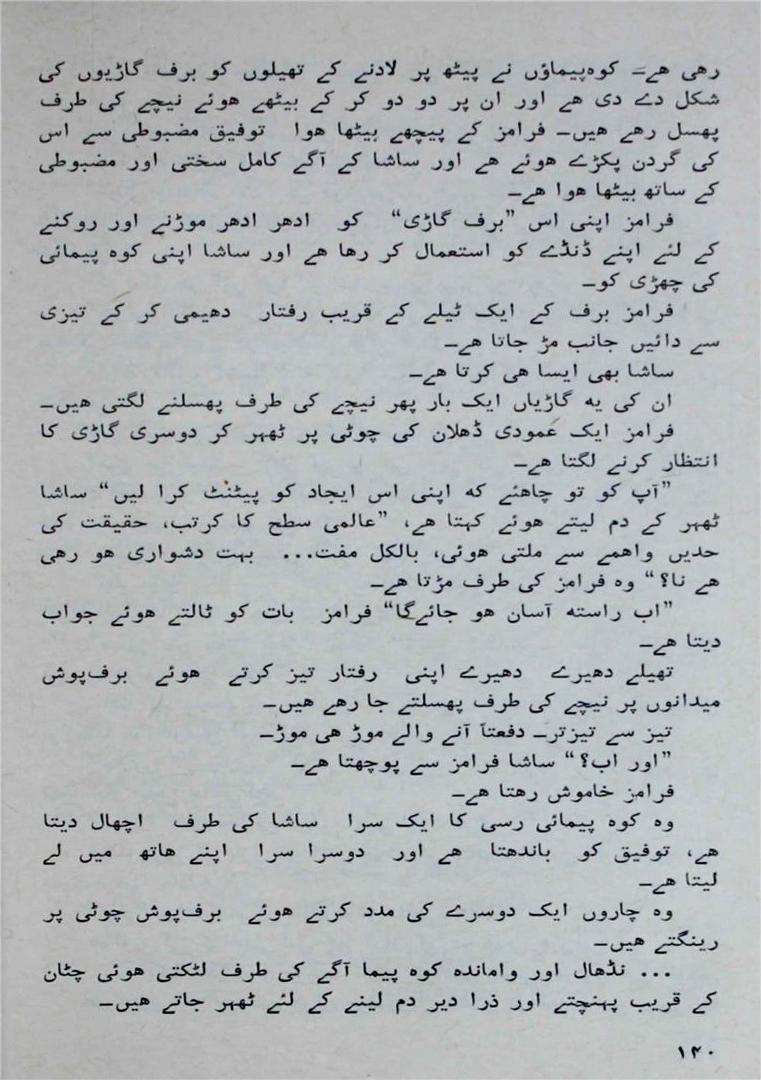 رهی هے۔ کوہ‌پیماؤں نے پیٹھ پر لادنے کے تھیلوں کو برف گاڑیوں کی
شکل دے دی هے اور ان پر دو دو کر کے بیٹھے هوئے نیچے کی طرف
پھسل رهے هیں۔ فرامز کے پیچھے بیٹھا هوا توفیق مضبوطی سے اس
کی گردن پکڑے هوئے هے اور ساشا کے آگے کامل سختی اور مضبوطی
کے ساتھ بیٹھا هوا هے۔
فرامز اپنی اس ”برف گاڑی“ کو ادھر ادھر موڑنے اور روکنے
کے لئے اپنے ڈنڈے کو استعمال کر رها هے اور ساشا اپنی کوہ پیمائی
کی چھڑی کو۔
فرامز برف کے ایک ٹیلے کے قریب رفتار دھیمی کر کے تیزی
سے دائیں جانب مڑ جاتا هے۔
ساشا بھی ایسا هی کرتا هے۔
ان کی یه گاڑیاں ایک بار پھر نیچے کی طرف پھسلنے لگتی هیں۔
فرامز ایک عمودی ڈھلان کی چوٹی پر ٹھہر کر دوسری گاڑی کا
انتظار کرنے لگتا هے۔
”آپ کو تو چاهئے که اپنی اس ایجاد کو پیٹنٹ کرا لیں“ ساشا
ٹھہر کے دم لیتے هوئے کہتا هے، ”عالمی سطح کا کرتب، حقیقت کی
حدیں واهمے سے ملتی هوئی، بالکل مفت... بہت دشواری هو رهی
هے نا؟“ وہ فرامز کی طرف مڑتا هے۔
”اب راسته آسان هو جائےگا“ فرامز بات کو ٹالتے هوئے جواب
دیتا هے۔
تھیلے دھیرے دھیرے اپنی رفتار تیز کرتے هوئے برف‌پوش
میدانوں پر نیچے کی طرف پھسلتے جا رهے هیں۔
تیز سے تیزتر۔ دفعتاً آنے والے موڑ هی موڑ۔
”اور اب؟“ ساشا فرامز سے پوچھتا هے۔
فرامز خاموش رهتا هے۔
وہ کوہ پیمائی رسی کا ایک سرا ساشا کی طرف اچھال دیتا
هے، توفیق کو باندھتا هے اور دوسرا سرا اپنے هاتھ میں لے
لیتا هے۔
وہ چاروں ایک دوسرے کی مدد کرتے هوئے برف‌پوش چوٹی پر
رینگتے هیں۔
... نڈھال اور واماندہ کوہ پیما آگے کی طرف لٹکتی هوئی چٹان
کے قریب پہنچتے اور ذرا دیر دم لینے کے لئے ٹھہر جاتے هیں۔
۱۴۰